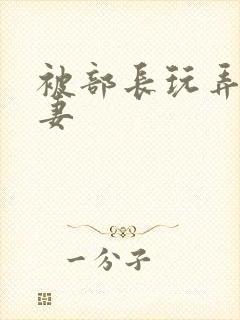 被部長玩弄
妻
一分子